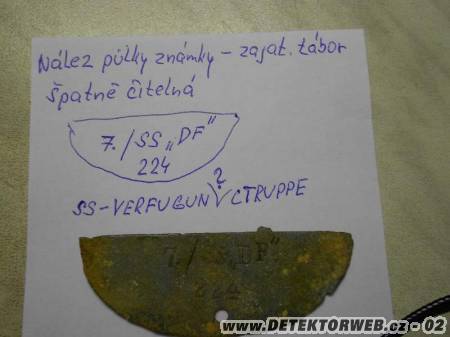 Nález půlky známky – zajat. tábor
špatně čitelná
7./SS „DF"
224
?
SS-VERFUGUN CTRUPPE
7./SS„DF"
224
www.DETEKTORWEB.cz - 02